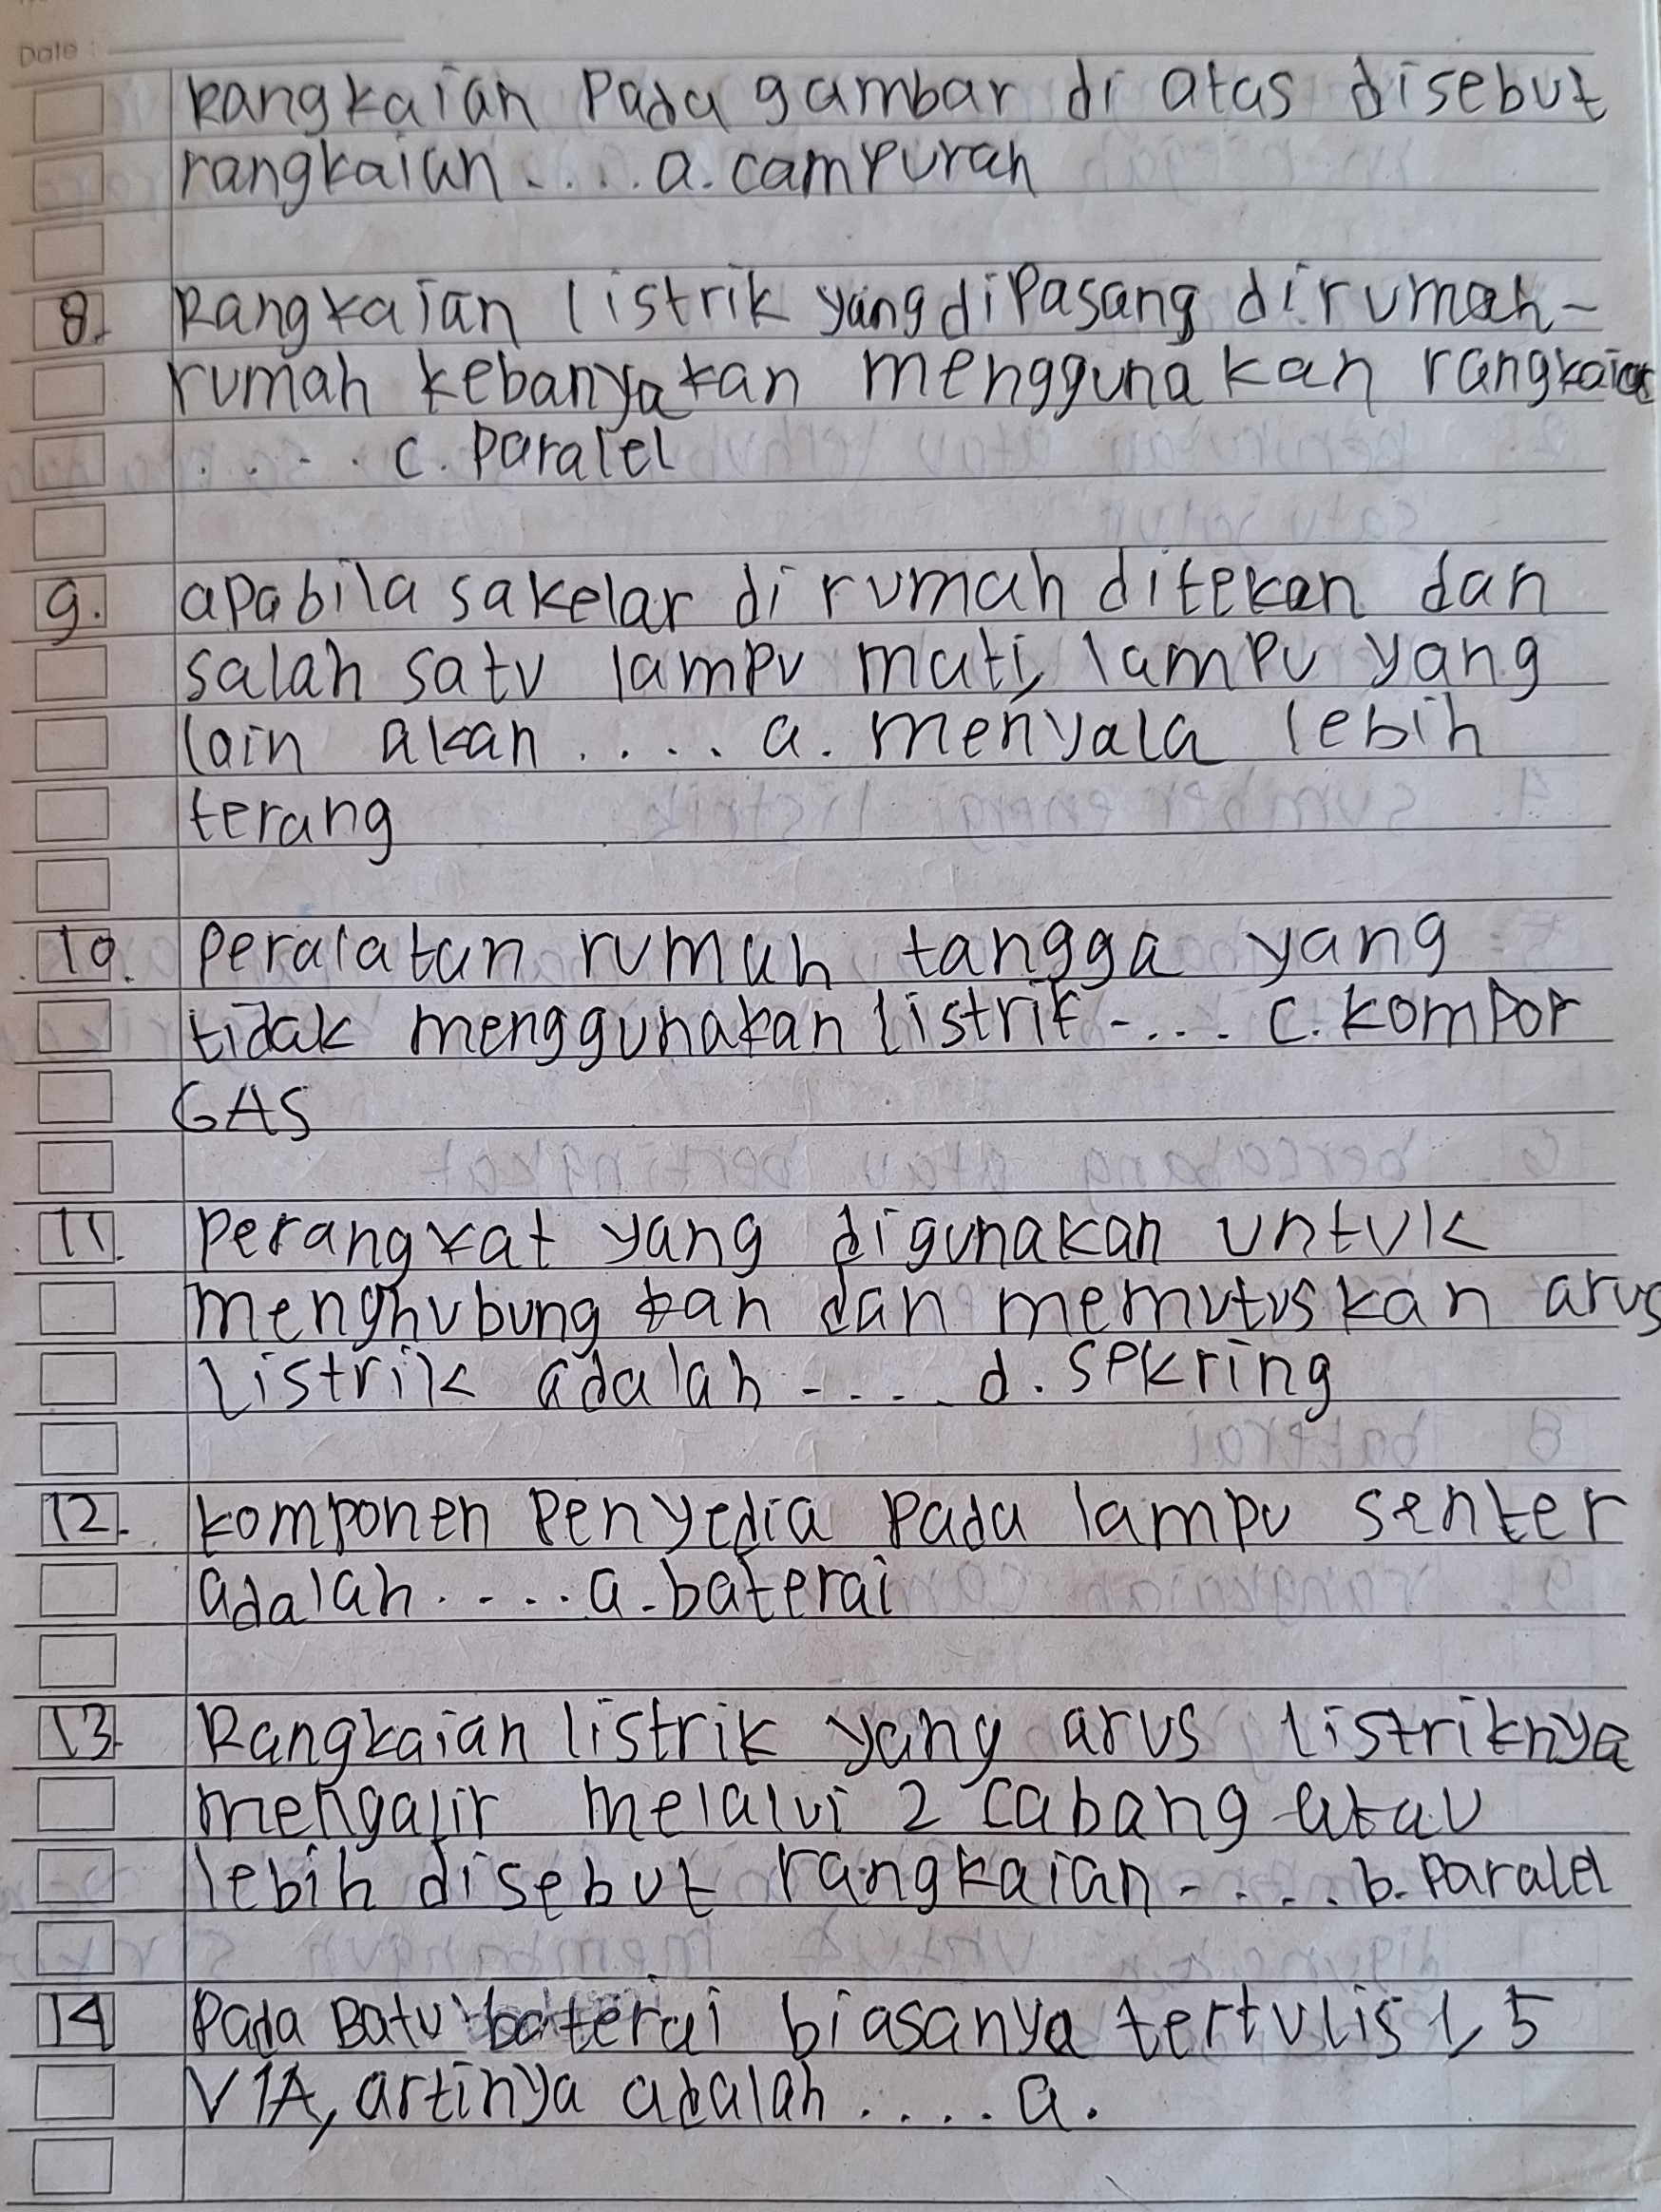 Date :
Rangkaian Pada gambar di atas disebut
rangkaian .... a. campuran
8. Rangkaian listrik yang dipasang dirumah-
rumah kebanyakan menggunakan rangkaian
.... c. paralel
9. apabila sakelar di rumah ditekan dan
salah satu lampu mati, lampu yang
lain akan .... a. menyala lebih
terang
10. peralatan rumah tangga yang
tidak menggunakan listrik .... c. kompor
GAS
11. perangkat yang digunakan untuk
menghubungkan dan memutuskan arus
listrik adalah .... d. sekring
12. komponen penyedia pada lampu senter
adalah .... a. baterai
13. Rangkaian listrik yang arus listriknya
mengalir melalui 2 cabang atau
lebih disebut rangkaian .... b. paralel
14 Pada Batu baterai biasanya tertulis 1,5
V1A, artinya adalah .... a.